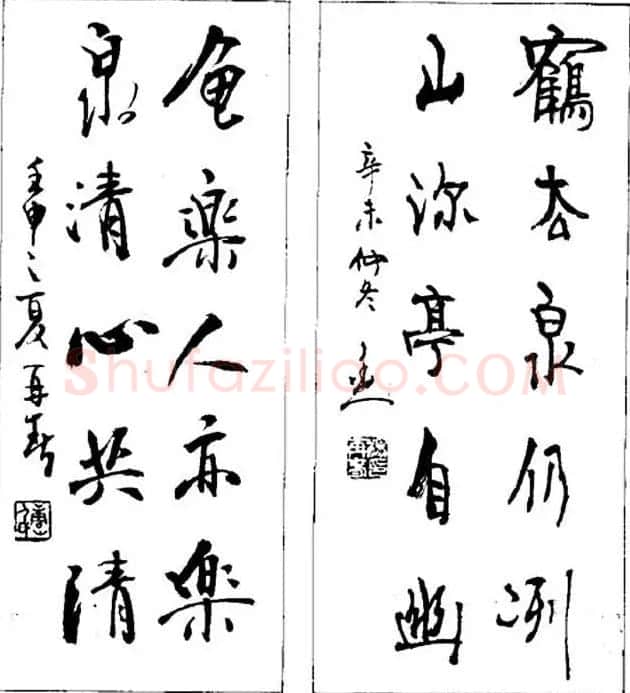 鶴去泉仍冽
山深亭自幽
辛未仲冬
魚樂人亦樂
泉清心共清
壬申之夏再春
Shufaziliao.COM